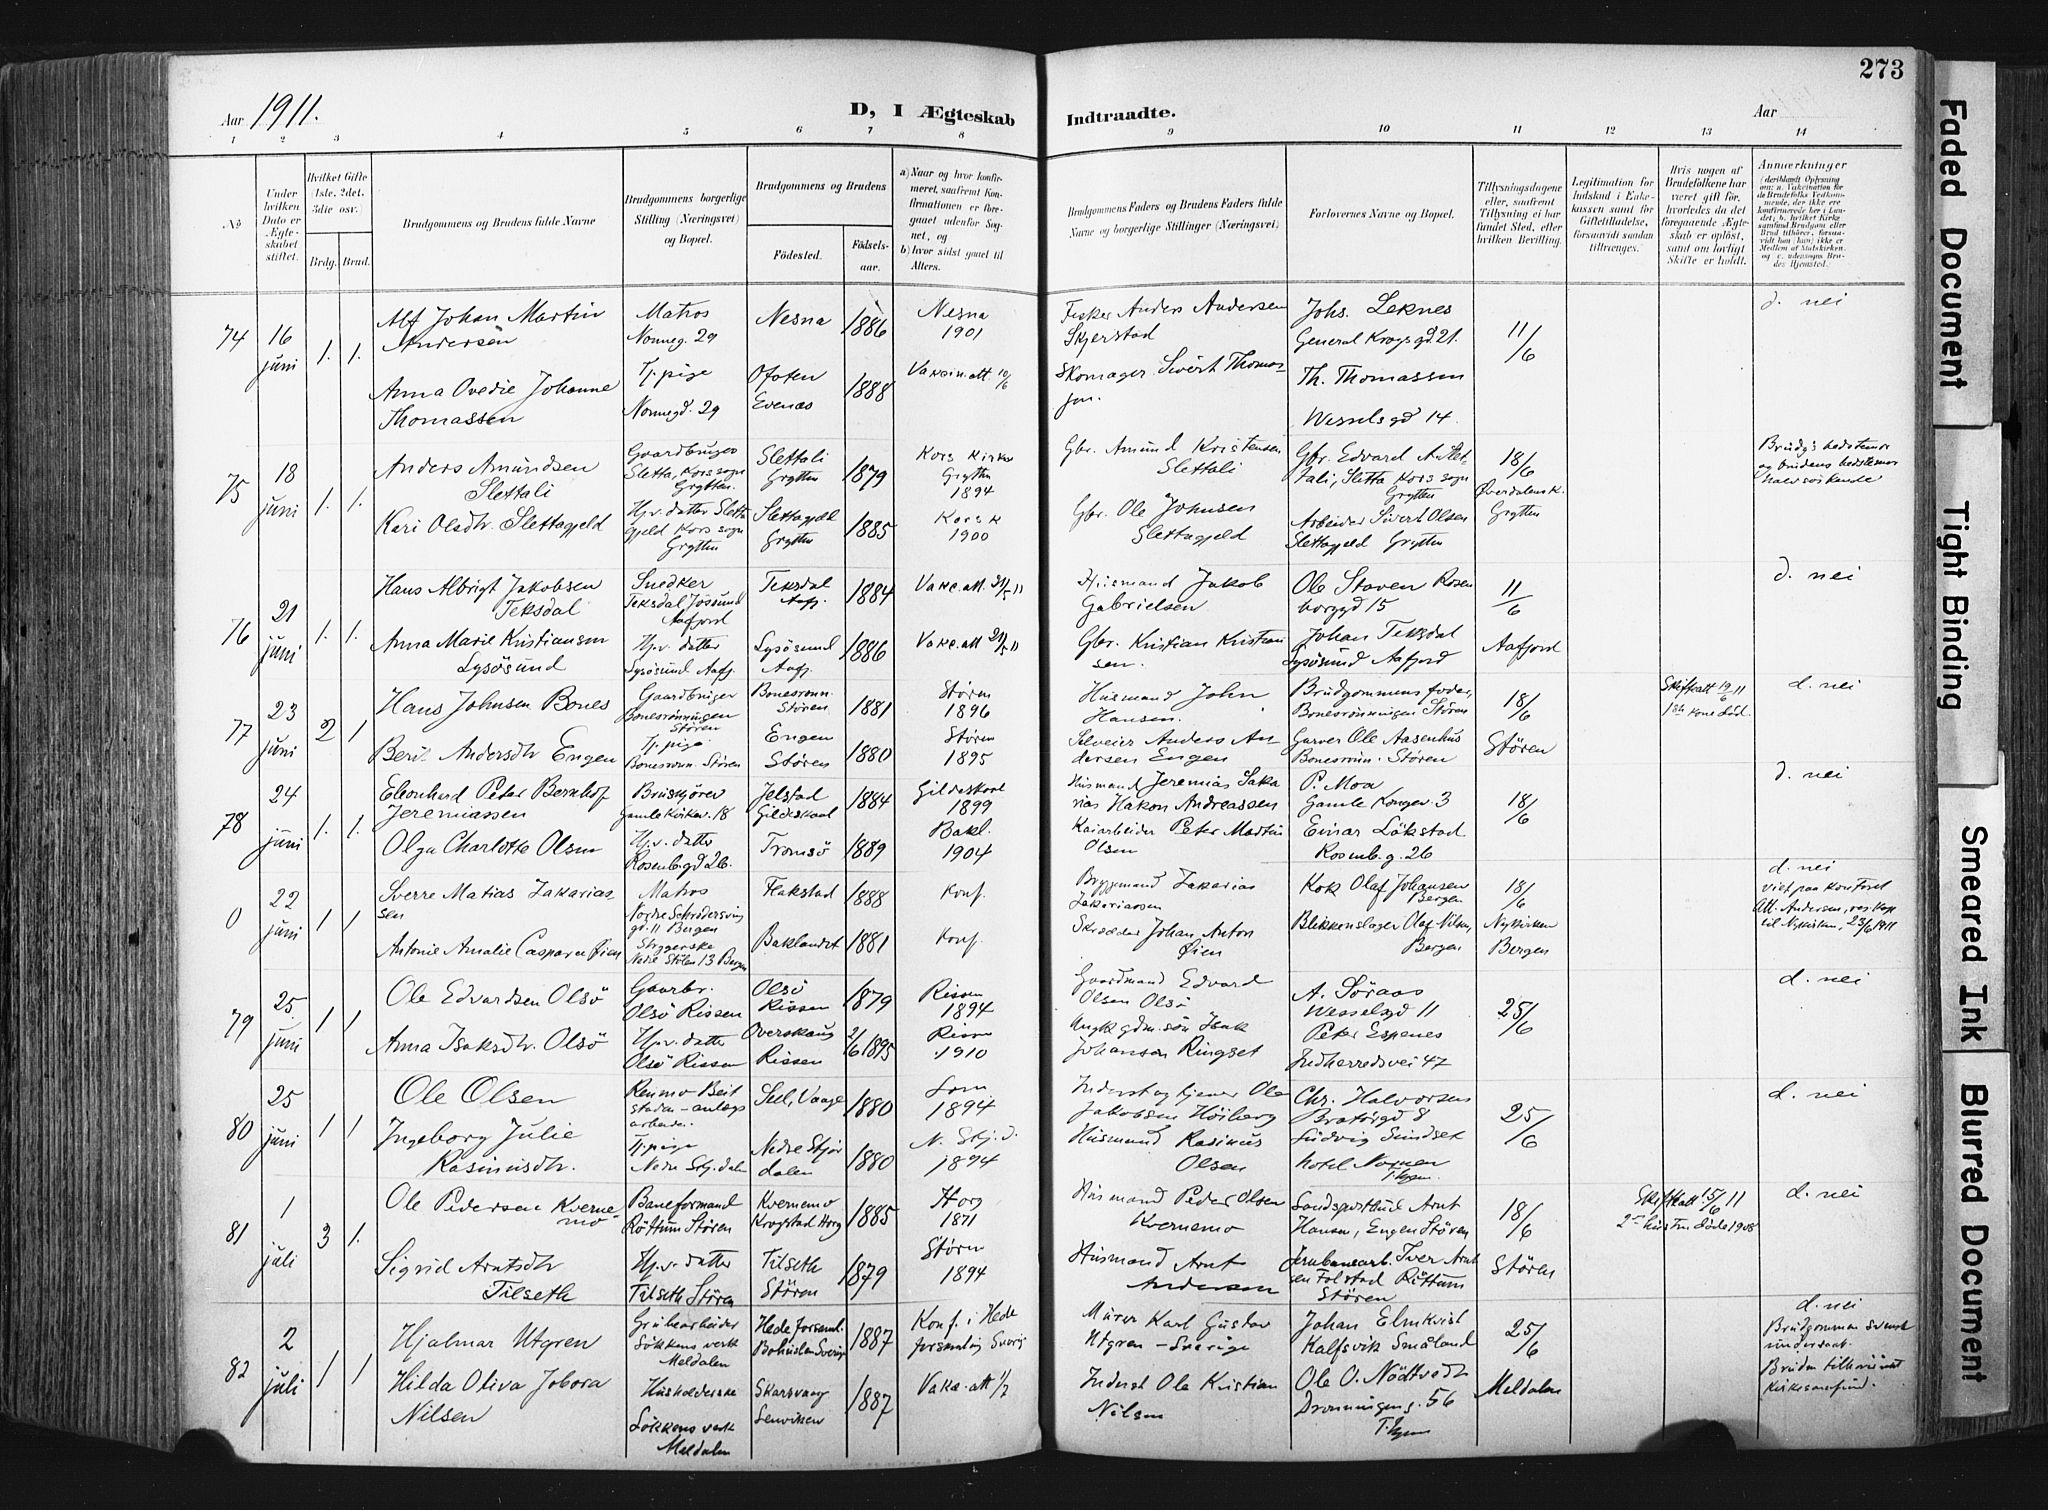 273
Aar 1911.
D, I Ægteskab
Indtraadte.
Aar
1 2 3 4 5 6 7 8 9 10 11 12 13 14
No
Under hvilken Dato er Ægteskabet stiftet.
Hvilket Gifte (1ste, 2det, 3die osv.)
Brdg. Brud.
Brudgommens og Brudens fulde Navne
Brudgommens borgerlige Stilling (Næringsvei) og Bopæl.
Brudgommens og Brudens
Födested.
Födselsaar.
a) Naar og hvor konfirmeret, saafremt Konfirmationen er foregaaet udenfor Sognet, og
b) hvor sidst gaaet til Alters.
Brudgommens Faders og Brudens Faders fulde Navne og borgerlige Stillinger (Næringsvei)
Forlovernes Navne og Bopæl.
Tillysningsdagene eller, saafremt Tillysning ei har fundet Sted, efter hvilken Bevilling.
Legitimation for Indskud i Enkekassen samt for Giftetilladelse, forsaavidt saadan tiltrænges.
Hvis nogen af Brudefolkene har været gift för, hvorledes da det foregaaende Ægteskab er oplöst, samt om lovligt Skifte er holdt.
Anmærkninger
74
16 juni
1. 1.
Alf Johan Martin Andersen
Matros
Nonneg. 29
Nesna
1886
Nesna
1901
Fisker Anders Andersen
Skjerstad
Johs. Leknes
General Krogs gd 21.
11/6
d. nei
Anna Ovedie Johanne Thomassen
Tj. pige
Nonnegd. 29
Ofoten
Evenæs
1888
Vaksin. att. 10/6
Skomager Sivert Thomassen.
Th. Thomassen
Wesselsgd 14.
75
18 juni
1. 1.
Anders Amundsen Slettali
Gaardbruger
Sletta, Kors sogn
Grytten.
Slettali
Grytten
1879
Kors Kirke
Grytten
1894
Gbr. Amund Kristensen
Slettali
Gbr. Edvard A. Slettali, Sletta Kors sogn
Grytten
18/6
Øverdalens k.
Grytten
Brudg's bedstemor
og brudens bedstemor
halvsøskende
Kari Olsdtr. Slettagjeld
Hj.v. datter Slettagjeld Kors sogn
Grytten
Grytten
1885
Kors k
1900
Gbr. Ole Johnsen
Slettagjeld
Arbeider Sivert Olsen
Slettagjeld Grytten
76
21 juni
1. 1.
Hans Albrigt Jakobsen Teksdal
Snedker
Teksdal Jøssund
Aafjord
Teksdal
Aafj.
1884
Husmand Jakob
Gabrielsen
Ole Staven Rosenborggd 15
11/6
d. nei
Anna Marie Kristiansen Lysøsund
Hj.v. datter
Lysøsund Aafj.
Lysøsund
Aafj.
1886
Gbr. Kristian Kristiansen.
Johan Teksdal
Lysøsund Aafjord
Aafjord
77
23 juni
2 1
Hans Johnsen Bones
Gaardbruger
Bonesrønningen
Støren
Bonesrønn.
Støren
1881
Støren
1896
Husmand John
Hansen.
Brudgommens fader,
Bonesrønningen Støren
18/6
Skifteatt 19/6 11
1ste kone død.
d. nei
Berit Andersdtr Engen
Tj. pige
Bonesrønn. Støren
Engen
Støren
1880
Støren
1895
Selveier Anders Andersen Engen
Garver Ole Aasenhus
Bonesrønn. Støren
Støren
78
24 juni
1. 1.
Eleonhard Peter Bernhof Jeremiassen
Bruskjører
Gamle Kirkev. 18
Jelstad
Gildeskaal
1884
Gildeskaal
1899
Husmand Jeremias Sakarias Hakon Andreassen
P. Moa
Gamle Kongev. 3
18/6
d. nei
Olga Charlotte Olsen
Hj.v. datter
Rosenb.gd 26.
Tromsö
1889
Bakl.
1904
Kaiarbeider Peter Martin
Olsen
Einar Lökstad
Rosenb. g. 26
0
22 juni
1 1
Sverre Matias Zakariassen
Matros
gd. 11 Bergen
Flakstad
1888
Konf.
Byggemand Zakarias
Zakariassen
Kok Olaf Johansen
Bergen
18/6
d. nei
viet paa kontoret
Att. Andersen, res. kap
til Nykirken, 23/6 1911
Antonie Amalie Casparca Øien
Nedre Stølen 13 Bergen
Baklandet
1881
Konf.
Skræder Johan Anton
Øien
Blikkenslager Olaf Nilsen,
Bergen
Nykirken
Bergen
79
25. juni
1 1
Ole Edvardsen Olsö
Gaardbr.
Olsö Rissen
Olsö
Rissen
1879
Rissen
1894
Gaardmand Edvard
Olsen Olsö
A. Söraas
Wesselsgd 11
25/6
d. nei
Anna Isaksdtr. Olsö
Hj.v. datter
Olsö Rissen
Overskaug
Rissen
2/6 1895
Rissen
1910
Ungk. gdm. sön Isak
Johanson Ringset
Peter Espenes
Indherredsvei 47
80
25 juni
1 1
Ole Olsen
arbeider.
Sel, Vaage
1880
Lom
1894
Inderst og tjener Ole
Jakobsen Höiberg
Chr. Halvorsen
Bratörgd 8
25/6
d. nei
Ingeborg Julie Rasmusdtr.
Tj. pige
Nedre Stj. dalen
Nedre Stjördalen
1880
N. Stj. d.
1894
Husmand Rasmus
Olsen
Ludvig Sundset
Hotel Nornen
Thjem
81
1 juli
3 1.
Ole Pedersen Kvernemo
Baneformand
Röttum Støren
Kvernemo
Krogstad Horg
1885
Horg
1871
Husmand Peder Olsen
Kvernemo
Arnt
Hansen, Engen Støren
18/6
Skifteatt 15/6 11
2den hustru døde 1908
d. nei
Sigrid Arntsdtr Tilseth
Hj.v. datter
Tilseth Støren
Tilseth
Støren
1879
Støren
1894
Husmand Arnt
Andersen
Jernbanearb. Iver Arntsen Folstad Röttum
Støren
Støren
82
2 juli
1 1
Hjalmar Utgren
Grubearbeider
Lökkens verk
Meldalen
Hede forsaml.
Bohuslen Sverige
1887
Konf. i Hede
forsamling Sverig
Murer Karl Gustav
Utgren - Sverige
Johan Elmkvist
Kalfsvik Småland
25/6
d. nei
Brudgommen svensk
undersaat.
Hilda Oliva Jobora Nilsen
Husholderske
Lökkens verk
Meldalen
Skarsvaag
Lenviken
1887
Vakc. att 1/7
Inderst Ole Kristian
Nilsen
Ole O. Nödtvedt
Dronningens g. 56
Thjem
Meldalen
Faded Document
Tight Binding
Smeared Ink
Blurred Document